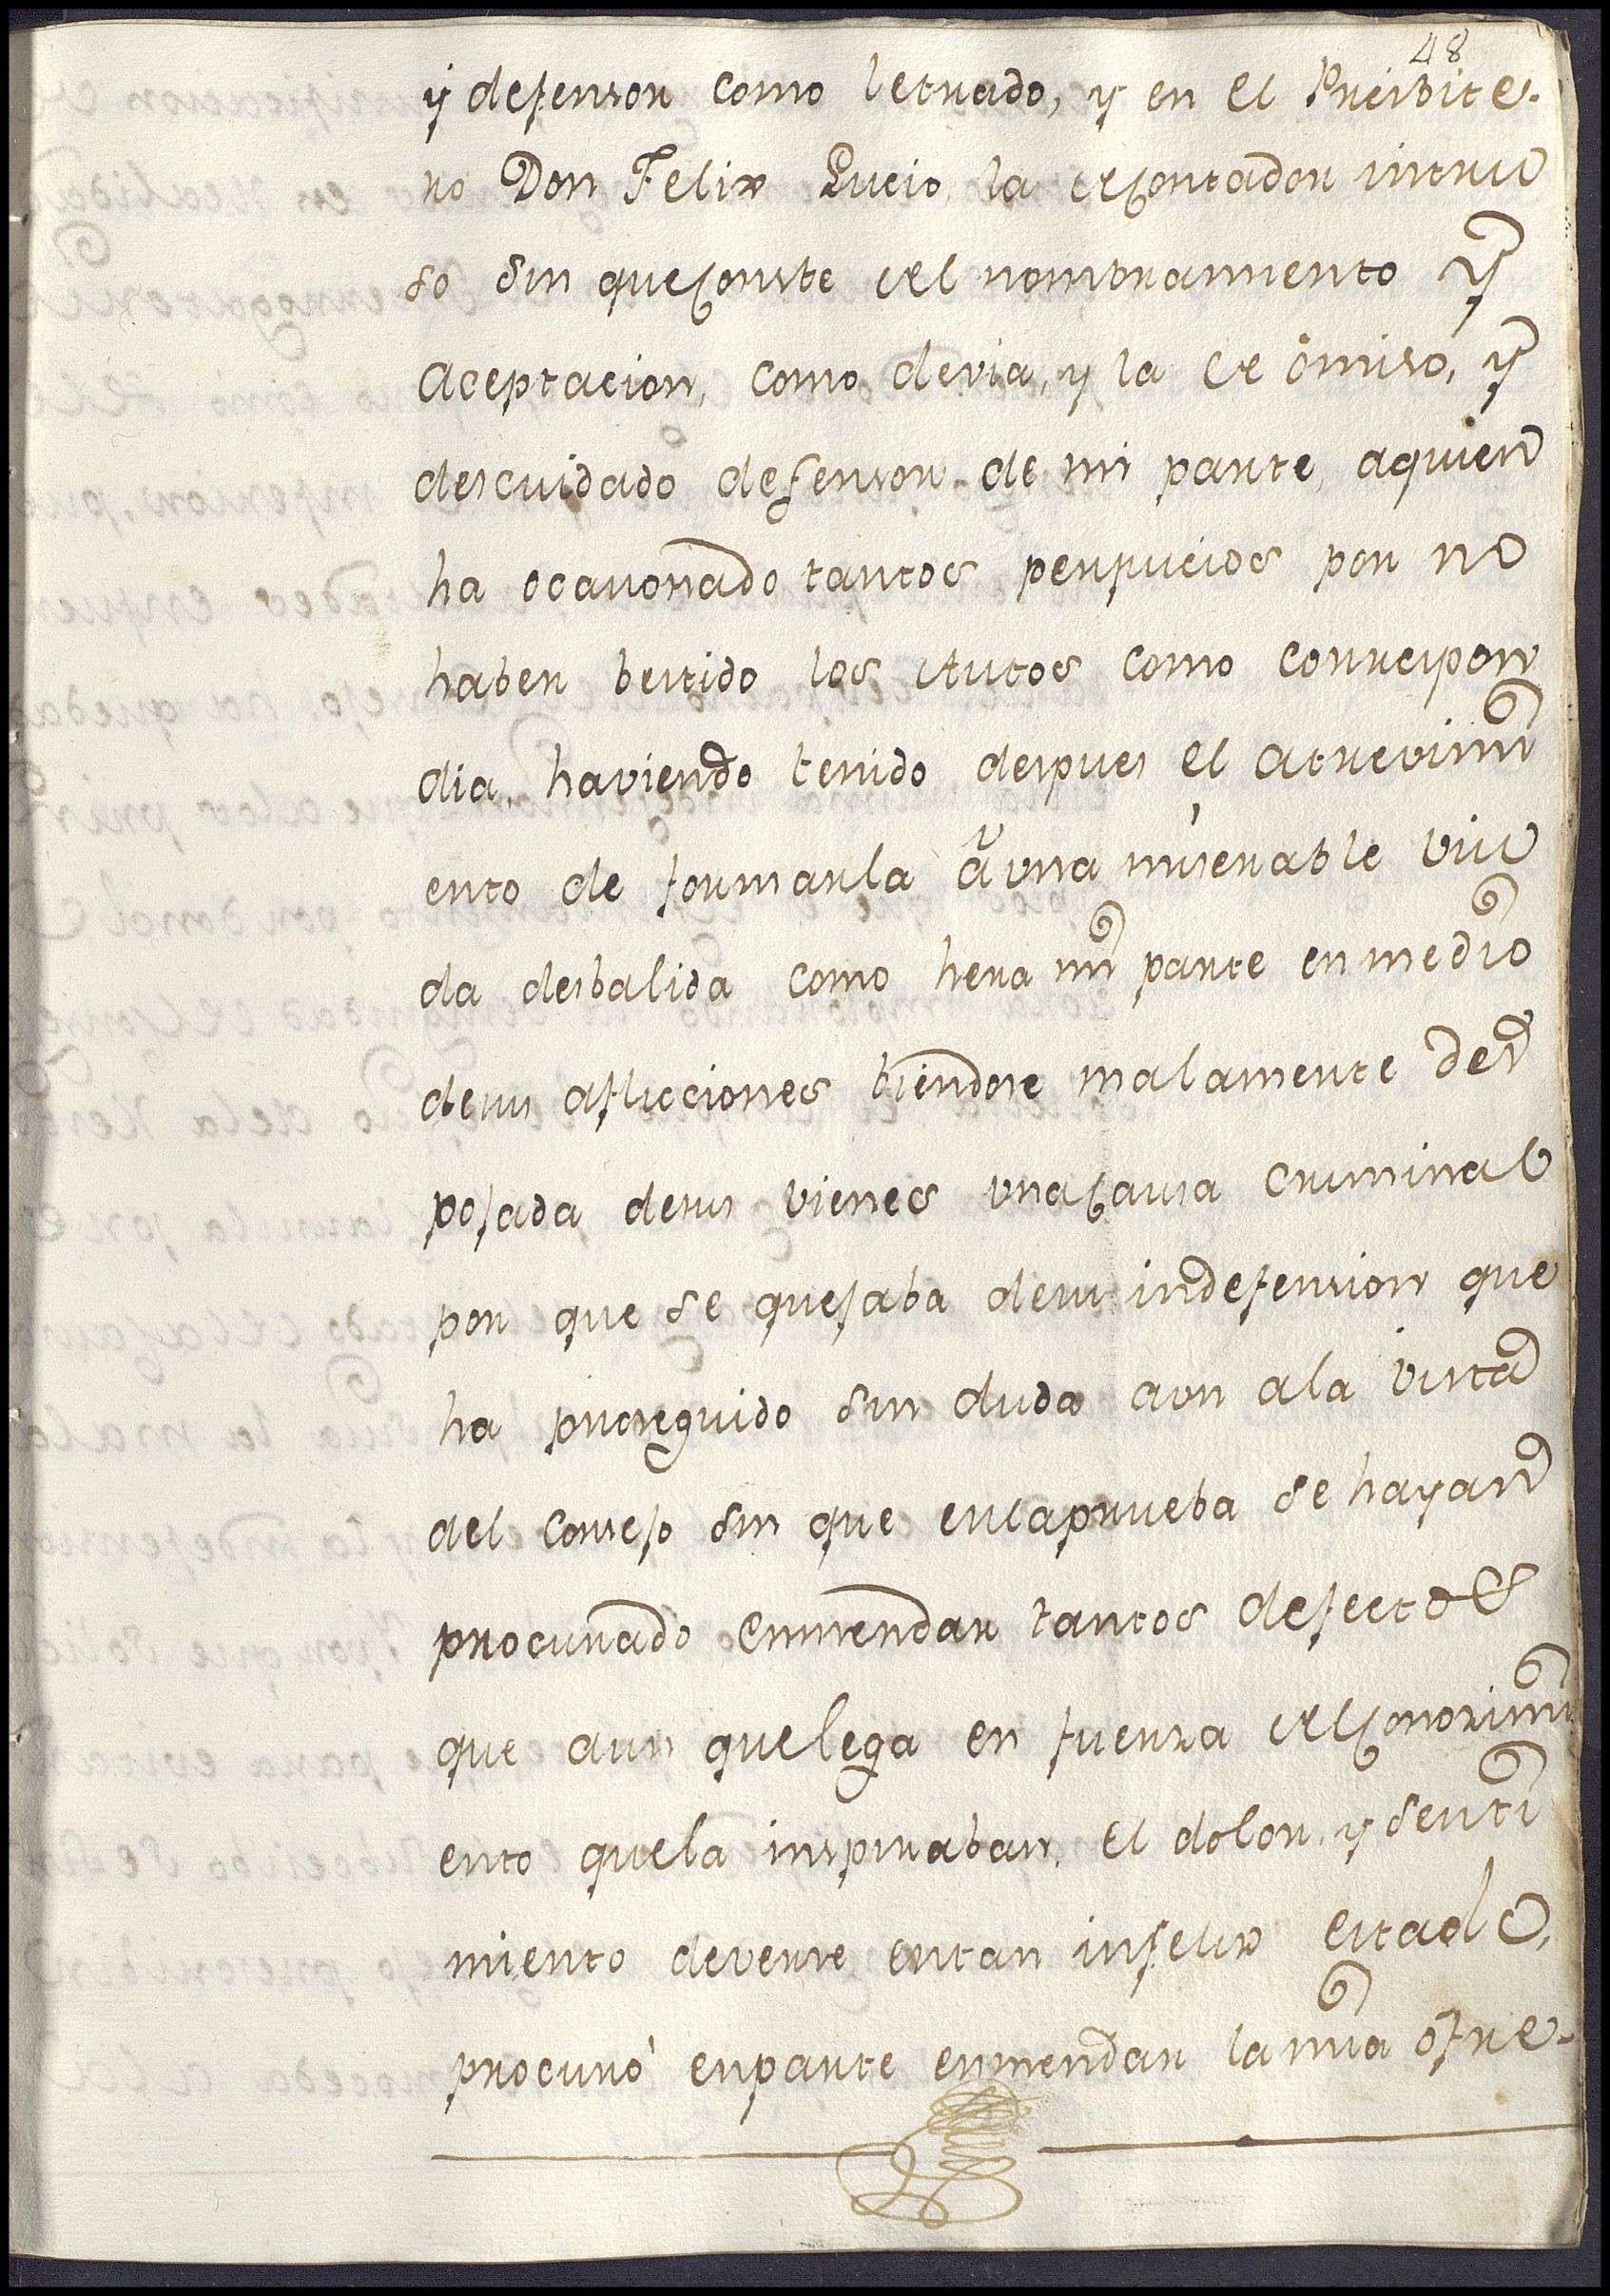 48
y defensor como letrado, y en el Presbite-
ro Don Felix Lucio, la de Contador intru
so sin que conste del nombramiento y
aceptacion, como devia, y la de omiso, y
descuidado defensor de mi parte, aquien
ha ocasionado tantos perjucios por no
haber bestido los Autos como correspon
dia, haviendo tenido despues el atrevimi
ento de formarla â vna miserable viu
da desbalida como hera mi parte en medio
desus aflicciones biendose malamente des
pojada desus vienes vna causa criminal
por que se quejaba desu indefension que
ha proseguido sin duda aun ala vista
del consejo sin que enlaprueba se hayan
procurado enmendar tantos defectos
que aun quelega en fuerza del conozimi
ento quela inspiraban, el dolor, y senti
miento deverse entan infeliz estado,
procuró enparte enmendar la mia ofre-